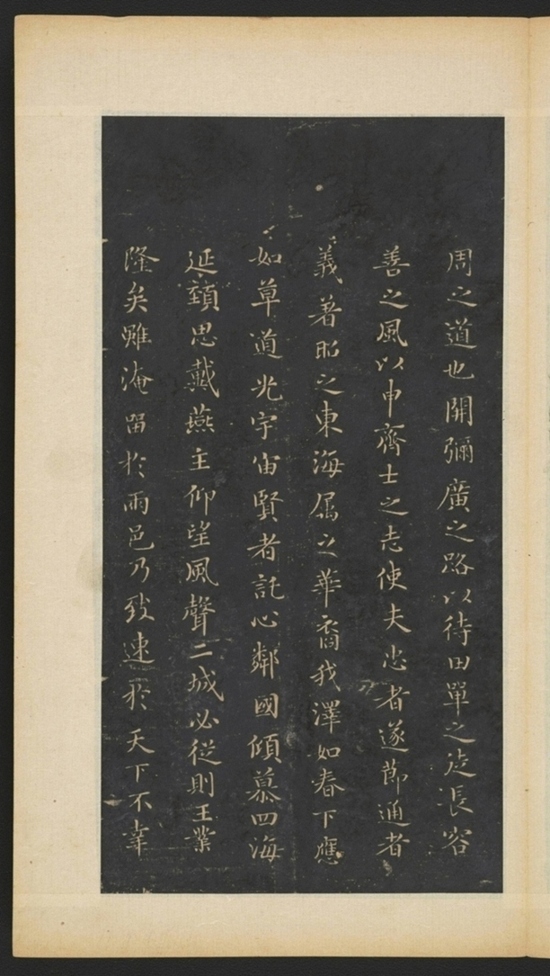 周之道也開彌廣之路以待田單之徒長容
善之風以申齊士之志使夫忠者遂節通者
義著昭之東海属之華裔我澤如春下應
如草道光宇宙賢者託心鄰國傾慕四海
延頸思戴燕主仰望風聲二城必從則王業
隆矣雖淹留於兩邑乃致速於天下不幸